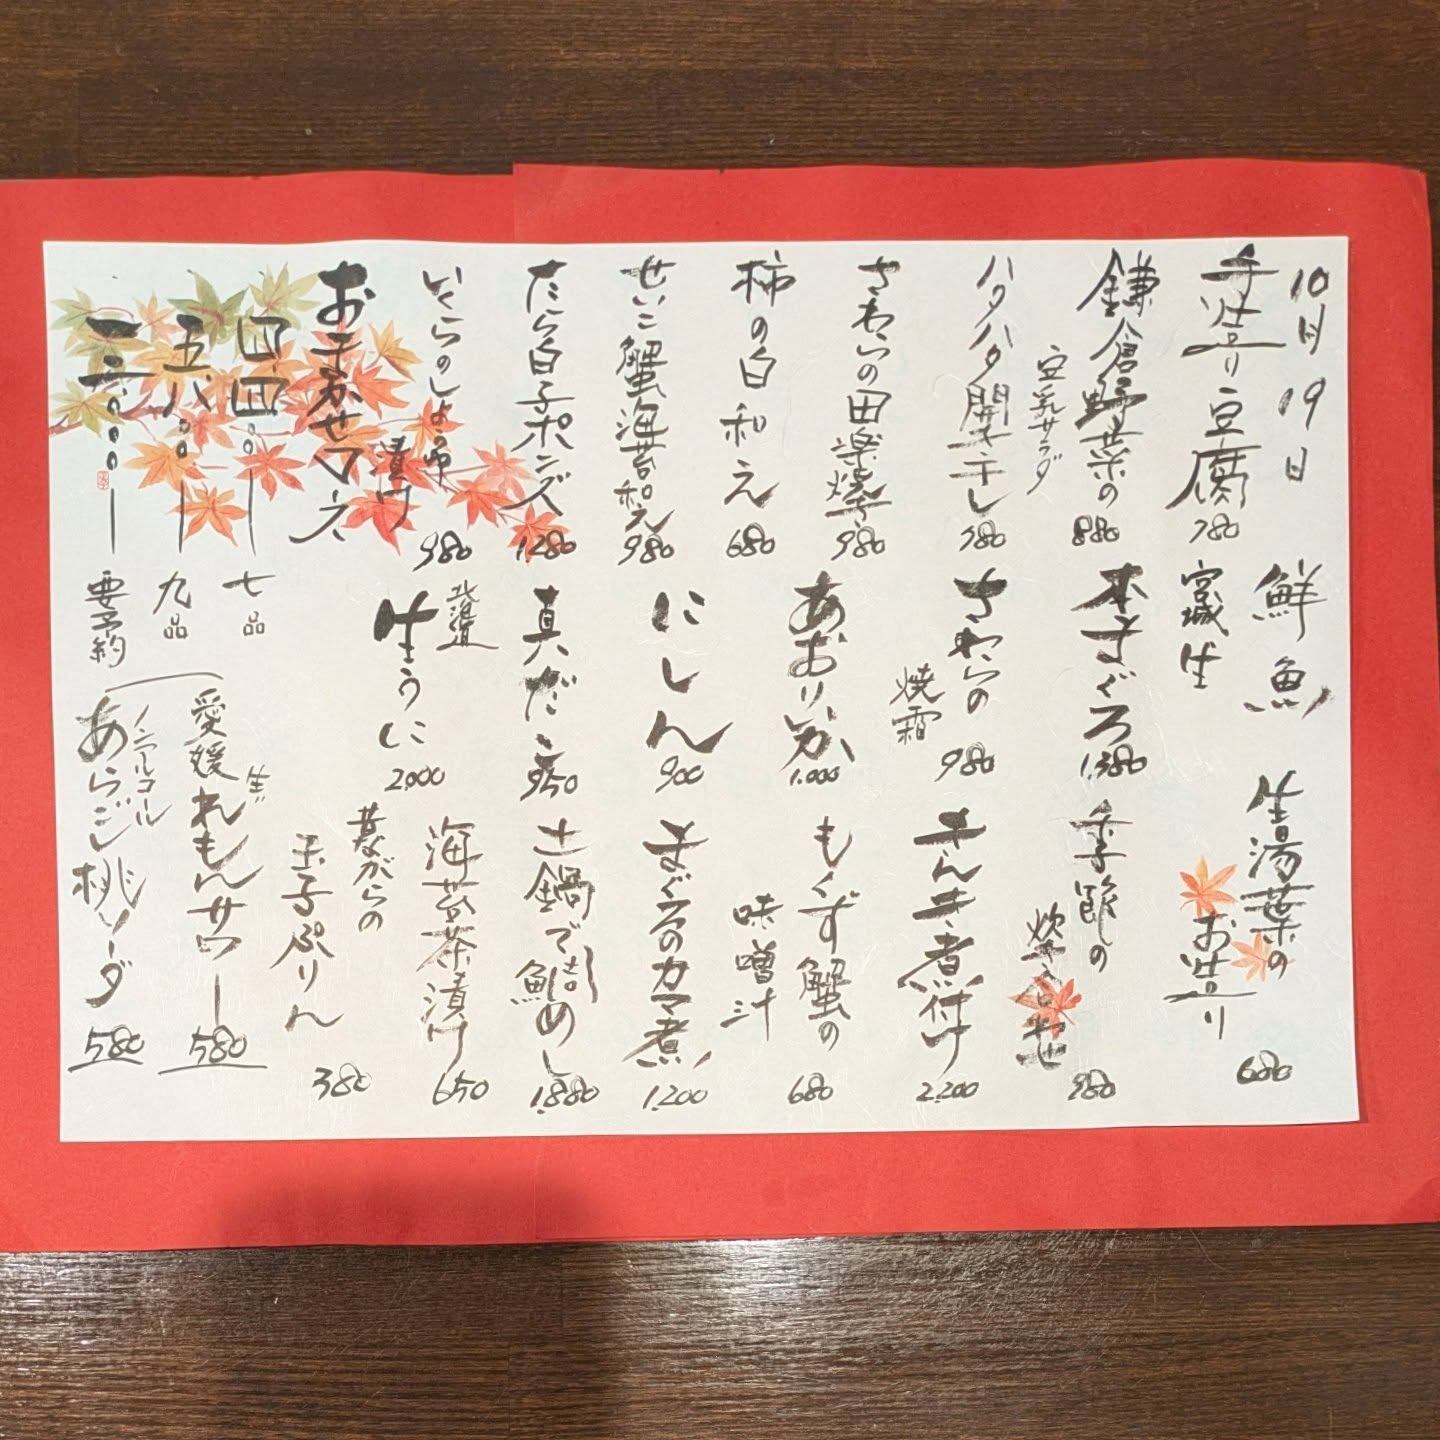 10月19日
手造り豆腐 780
鎌倉野菜の
豆乳サラダ 880
ハタハタ開き干し 980
さわらの田楽焼き 980
柿の白和え 680
せいこ蟹海苔和え 980
たら白子ポンズ 1280
いくらのしょう油
漬け 980
おまかせコース
四四〇〇― 七品
五八〇〇― 九品
一二〇〇〇― 要予約
鮮魚
宮城生
本まぐろ 1,380
さわらの
焼霜 980
あおりいか 1,000
にしん 900
真だこ 950
北海道
生うに 2,000
生湯葉の
お造り 680
季節の
炊き合わせ 980
きんき煮付け 2,200
もくず蟹の
味噌汁 680
まぐろのカマ煮 1,200
土鍋で鯛めし 1,880
海苔茶漬け 650
昔ながらの
玉子ぷりん 380
愛媛生れもんサワー 580
ノンアルコール
あらごし桃ソーダ 580